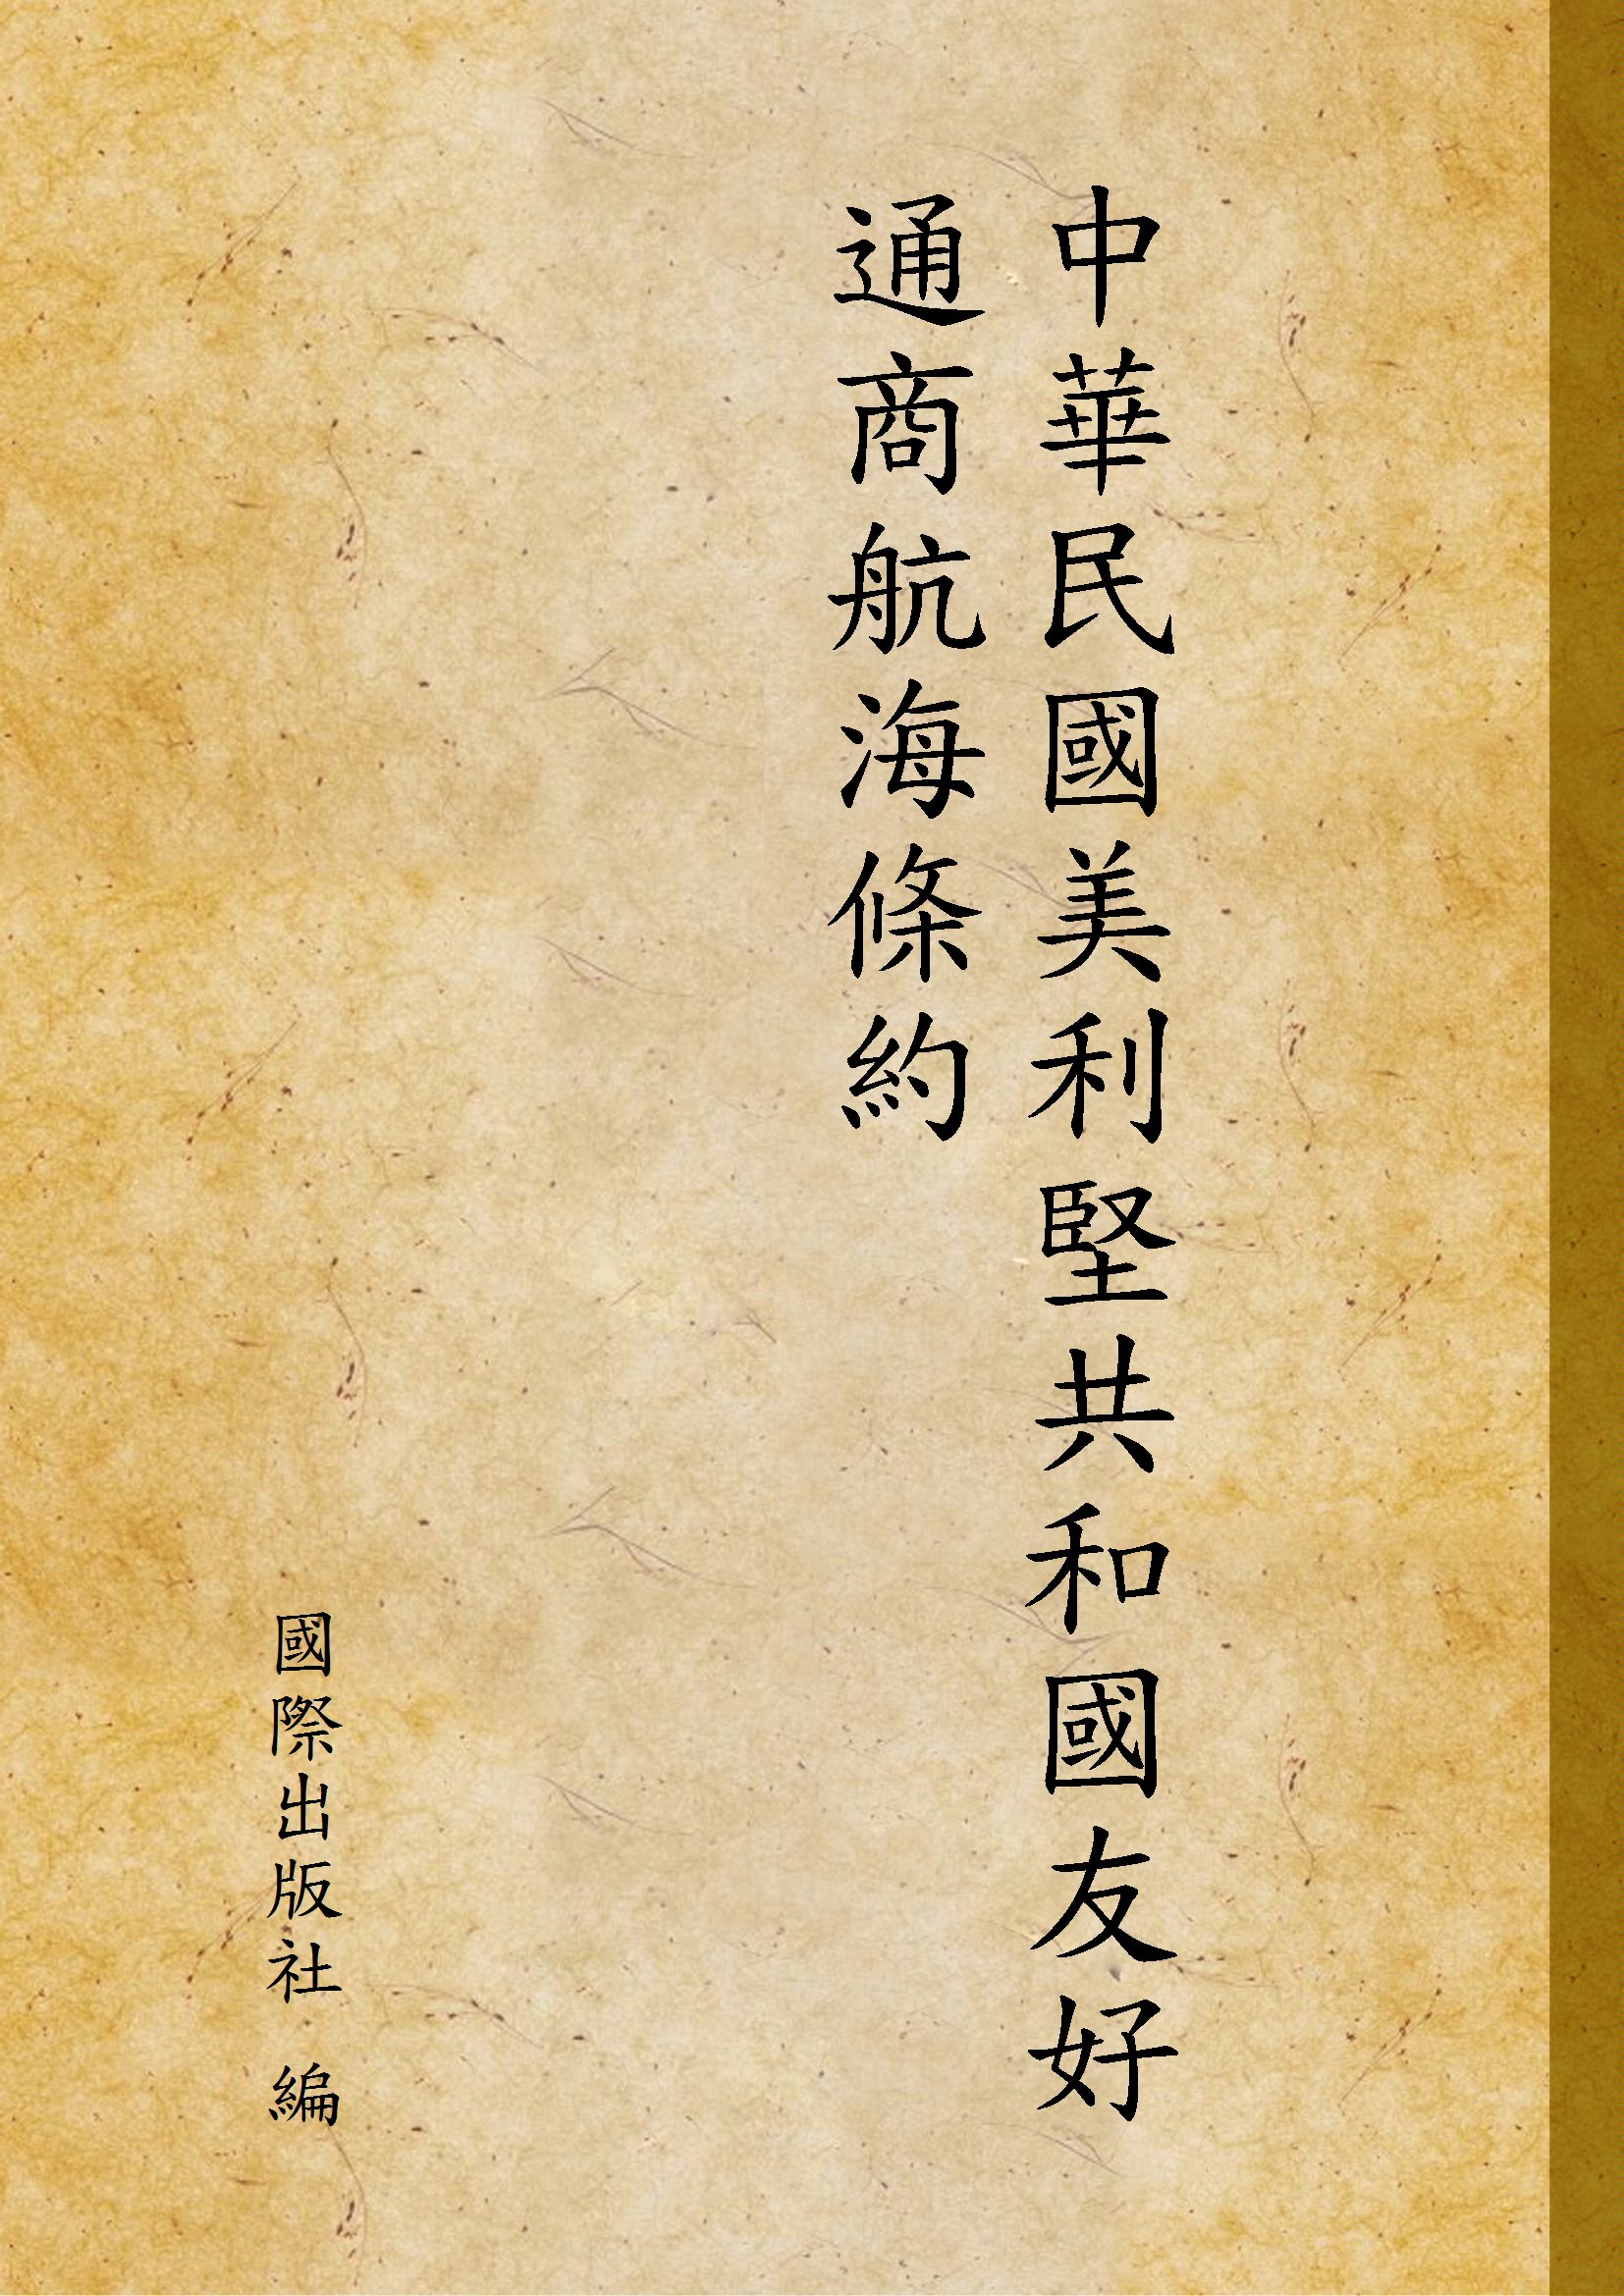 中華民國美利堅共和國友好
通商航海條約
國際出版社 編